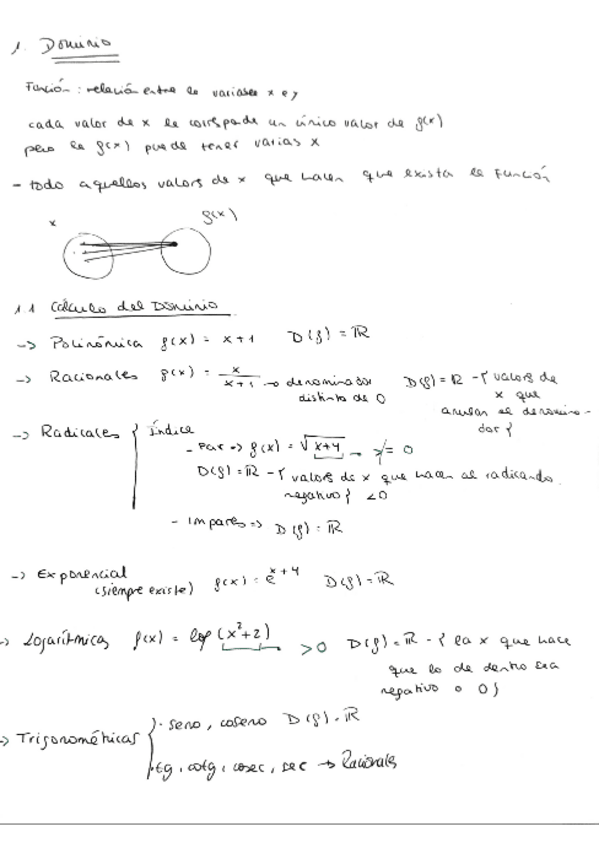 1. Dominio
Función: relación entre le variables x e y
cada valor de x le corresponde un único valor de f(x)
pero la f(x) puede tener varias x
- todo aquellos valors de x que hacen que exista le Función
x f(x)
1.1 Cálculo del Dominio
-> Polinómica f(x) = x+1 D(f) = ℝ
-> Racionales f(x) = x/(x+1) -> denominador distinto de 0 D(f) = ℝ - { valors de
x que
anulan el denomina-
dor }
-> Radicales { Índice
- Par => f(x) = √(x+4) -> >= 0
D(f) = ℝ - { valors de x que hacen el radicando
negativo } <0
- Impares => D(f) = ℝ
-> Exponencial f(x) = e^(x+4) D(f) = ℝ
(siempre existe)
-> Logarítmicas f(x) = log (x²+2) > 0 D(f) = ℝ - { la x que hace
que lo de dentro sea
negativo o 0 }
-> Trigonométricas { · seno, coseno D(f) = ℝ
· tg, cotg, cosec, sec -> Racionales